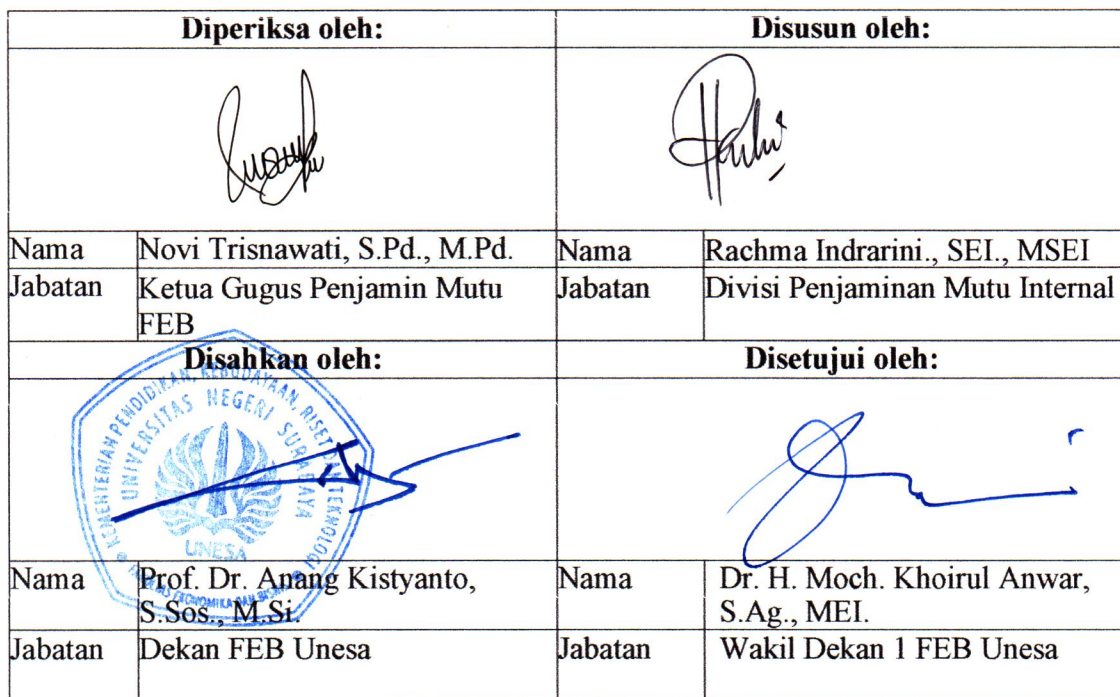 Diperiksa oleh: Disusun oleh:
Nama Novi Trisnawati, S.Pd., M.Pd. Nama Rachma Indrarini., SEI., MSEI
Jabatan Ketua Gugus Penjamin Mutu Jabatan Divisi Penjaminan Mutu Internal
FEB
Disahkan oleh: Disetujui oleh:
KEMENTERIAN PENDIDIKAN, KEBUDAYAAN, RISET DAN TEKNOLOGI
UNIVERSITAS NEGERI SURABAYA
UNESA
FAKULTAS EKONOMIKA DAN BISNIS
Nama Prof. Dr. Anang Kistyanto, Nama Dr. H. Moch. Khoirul Anwar,
S.Sos., M.Si. S.Ag., MEI.
Jabatan Dekan FEB Unesa Jabatan Wakil Dekan 1 FEB Unesa